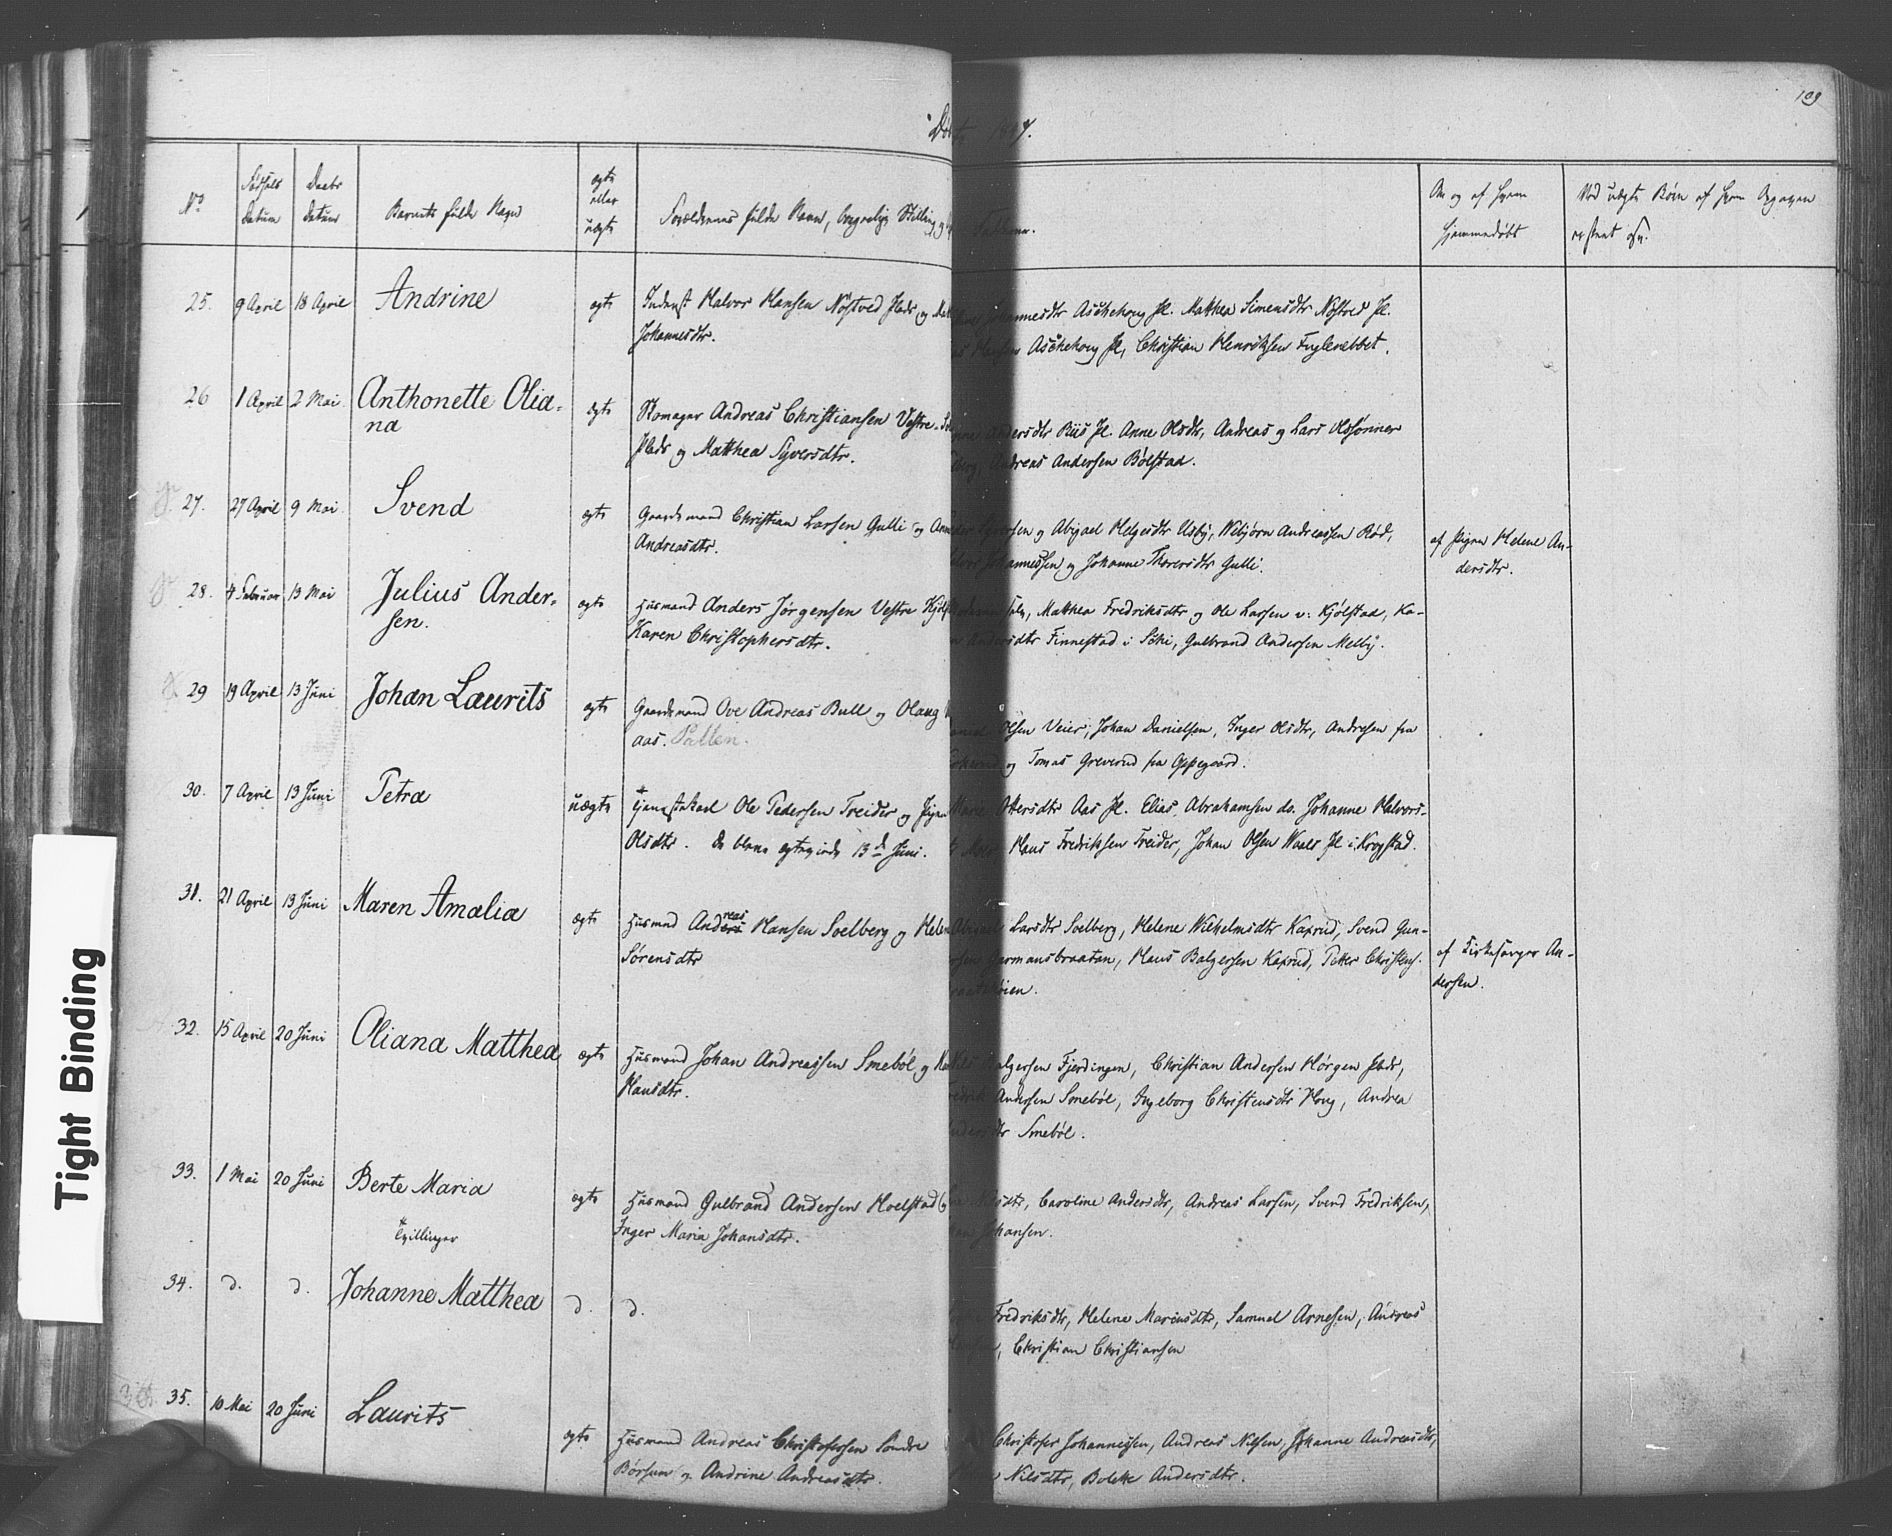 109
Døbte 1847.
No
Fødsels Datum
Daabs datum
Barnets fulde Navn
ægte eller uægte
Forældrenes fulde Navn, borgerlige Stilling og
Faddernes
Om og af hvem hjemmedøbt
Ved uægte Børn af hvem
25. 9 April 18 April Andrine ægte Inderst Halvor Hansen Nøstved Plads og
Johannesdtr.
Johannesdtr Aschehoug Pl. Matthea Simensdtr Nøstved Pl.
Hansen Aschehoug Pl, Christian Henriksen Fuglenebbet.
26 1 April 2 Mai Anthonette Olia-
na
ægte Skomager Andreas Christiansen Vestre
Plads og Matthea Syversdtr.
Andersdtr Riis Pl. Anne Olsdtr, Andreas og Lars Olssønner
Berg, Andreas Andersen Bølstad.
27. 27 April 9 Mai Svend ægte Gaardmand Christian Larsen Gulli og Anne
Andreasdtr.
Syversen og Abigael Helgesdtr Usby, Nebjørn Andreassen Rød,
Johannessen og Johanne Thoresdtr Gulli.
af Pigen Helene An-
dersdtr.
28. 4 Februar 13 Mai Julius Ander-
sen.
ægte Husmand Anders Jørgensen Vestre
Karen Christophersdtr.
Matthea Fredriksdtr og Ole Larsen v: Kjølstad, Ka-
Andersdtr Finnestad i Ski, Gulbrand Andersen Melby.
29 19 April 13 Juni Johan Laurits ægte Gaardmand Ove Andreas Bull og Olaug
aas. Pallen.
Olsen Veier, Johan Danielsen, Inger Olsdtr, Andresen fra
og Tomas Greverud fra Oppegaard.
30. 7 April 13 Juni Petra uægte Tjenestekarl Ole Pedersen Treider og Pigen
Olsdtr. De bleve ægteviede 13de Juni.
Marie Ottersdtr Aas Pl. Elias Abrahamsen do. Johanne Halvors-
Moer Hans Fredriksen Treider, Johan Olsen Waaler Pl i Krogstad.
31. 21 April 13 Juni Maren Amalia ægte Husmnd Andreas Hansen Solberg og Helene
Sørensdtr
Larsdtr Solberg, Helene Wilhelmsdtr Kaxrud, Svend Gun-
Gurmansbraatan, Hans Balzersen Kaxrud, Petter Christens.
af Kirkesanger An-
dersen.
32. 15 April 20 Juni Oliana Matthea ægte Husmand Johan Andreassen Smebøl og
Hansdtr.
Balzersen Fjerdingen, Christian Andersen Hørgen Plads,
Andersen Smebøl, Ingeborg Christensdtr Houg, Andrea
Andersdtr Smebøl.
33. 1 Mai 20 Juni Berte Maria
Tvillinger
ægte Husmand Gulbrand Andersen Hoelstad og
Inger Maria Johansdtr.
Nilsdtr, Caroline Andersdtr, Andreas Larsen, Svend Fredriksen,
Johansen.
34. d. d. Johanne Matthea d. d.
Fredriksdtr, Helene Mariusdtr, Samuel Arnesen, Andreas
Christian Christiansen
35. 10 Mai 20 Juni Laurits ægte Husmand Andreas Christofersen Søndre
Børsum og Andrine Andreasdtr.
Christofer Johannessen, Andreas Nilsen, Johanne Andreasdtr,
Nilsdtr, Bolette Andersdtr.
Tight Binding